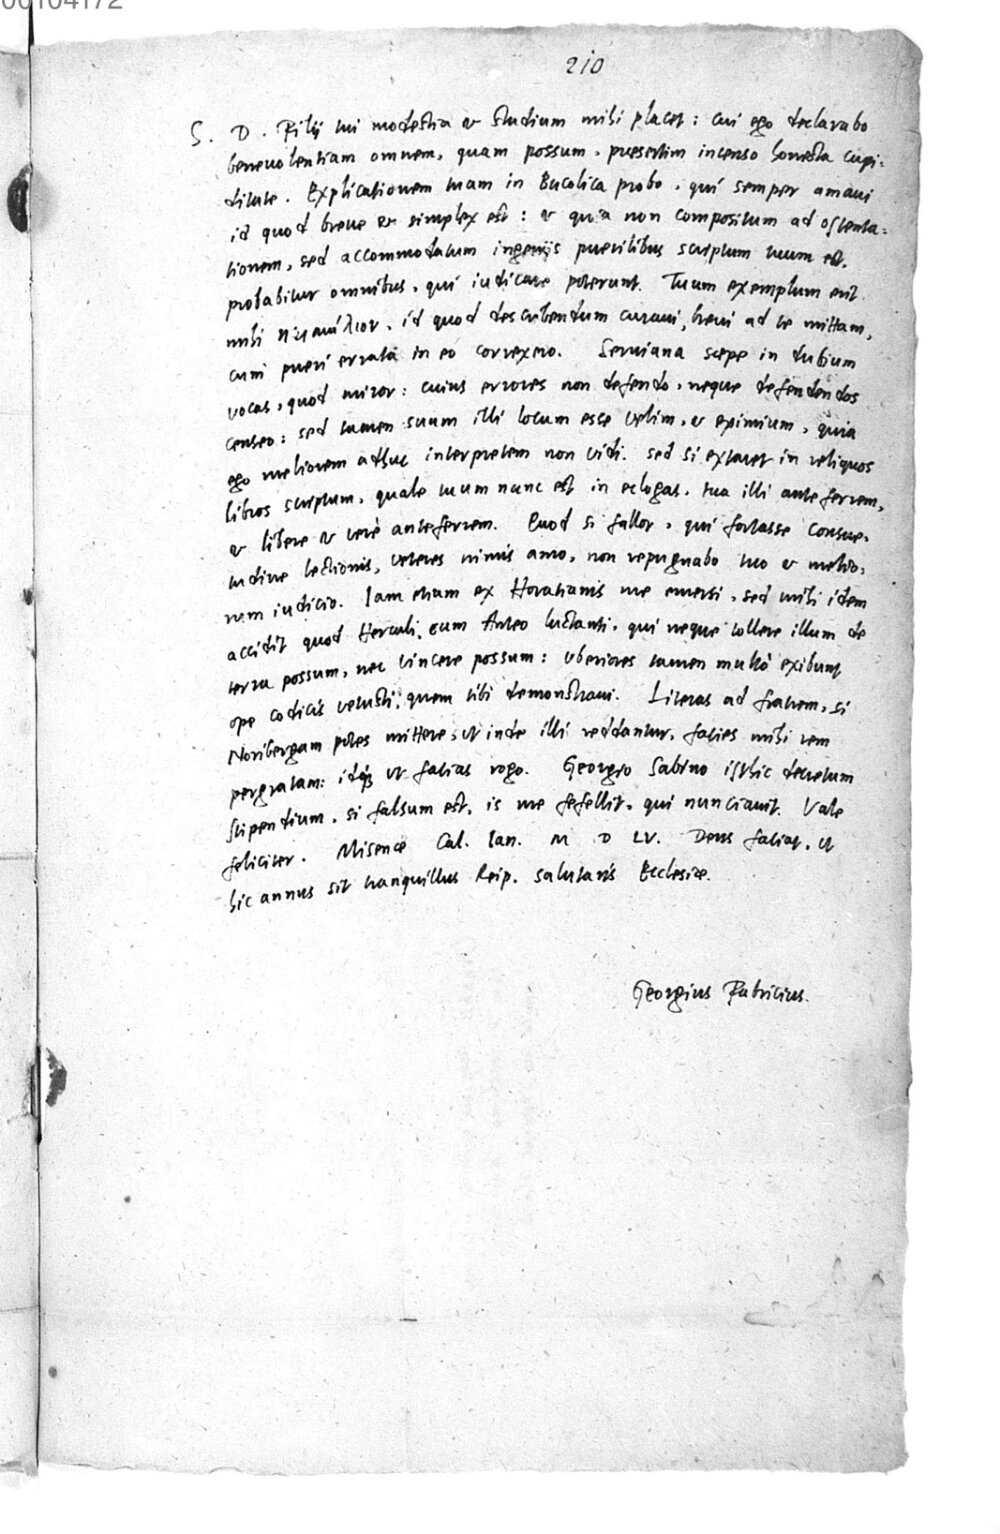 00104172
210
S. D. Filij tui modestia et studium mihi placet: cui ego declarabo
benevolentiam omnem, quam possum, praesertim incenso honesta cupi-
ditate. Explicationem tuam in Bucolica probo, qui semper amavi
id quod breve et simplex est: et quia non compositum ad ostenta-
tionem, sed accommodatum ingenijs puerilibus scriptum tuum est,
probabitur omnibus, qui iudicare poterunt. Tuum exemplum erit
mihi κειμήλιον, id quod describendum curavi, brevi ad te mittam,
cum pueri errata in eo correxero. Serviana saepe in dubium
vocas, quod miror: cuius errores non defendo, neque defendendos
censeo: sed tamen suum illi locum esse velim, et eximium, quia
ego meliorem adhuc interpretem non vidi. sed si extaret in reliquos
libros scriptum, quale tuum nunc est in eclogas, tua illi anteferrem,
et libere et verè anteferrem. Quod si fallor, qui fortasse consue-
tudine lectionis, veteres nimis amo, non repugnabo tuo et melio-
rum iudicio. Iam etiam ex Horatianis me emersi, sed mihi idem
accidit quod Herculi, cum Anteo luctanti, qui neque tollere illum de
terra possum, nec vincere possum: uberiores tamen multò exibunt
ope codicis vetusti, quem tibi demonstravi. Literas ad fratrem, si
Noribergam potes mittere, ut inde illi reddantur, facies mihi rem
pergratam: idque ut facias rogo. Georgio Sabino isthic decretum
stipendium, si falsum est, is me fefellit, qui nunciavit. Vale
feliciter. Misenae Cal. Ian. M D LV. Deus faciat, ut
hic annus sit tranquillus Reip. salutaris Ecclesiae.
Georgius Fabricius.